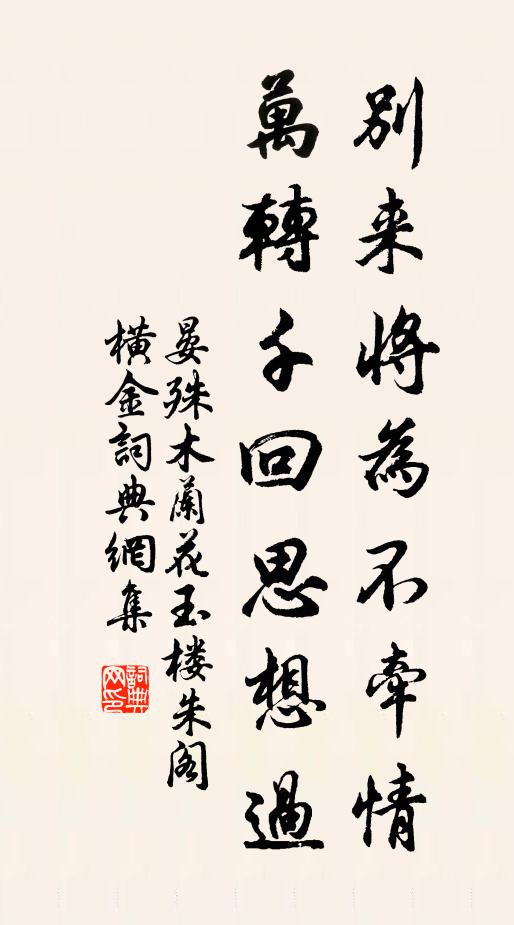 別来将為不牽情
萬轉千回思想過
晏殊木蘭花玉楼朱阁
横金詞典網集
詞典网印